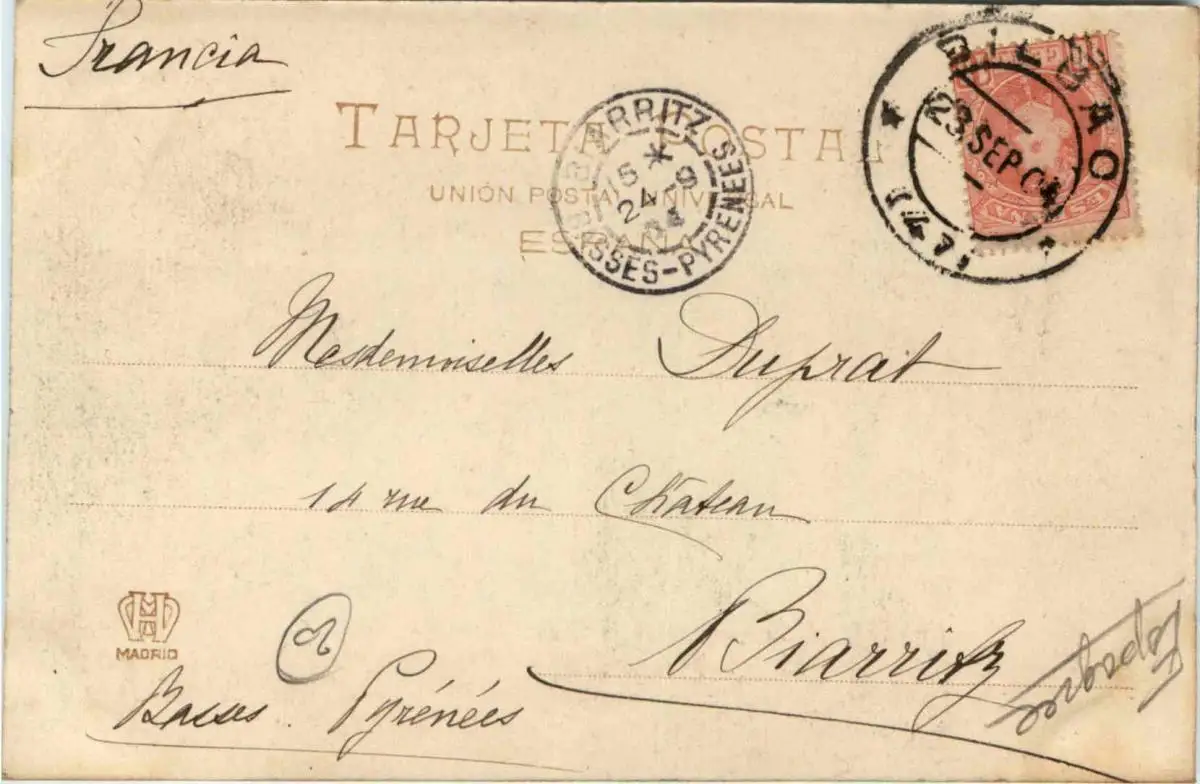 Francia
TARJETA POSTAL
UNIÓN POSTAL UNIVERSAL
ESPAÑA
BILBAO
23 SEP 04
(47)
BIARRITZ
15 * 9
24
04
BASSES-PYRENEES
Mesdemoiselles Duprat
14 rue du Château
Biarritz
MADRID
Basses Pyrénées